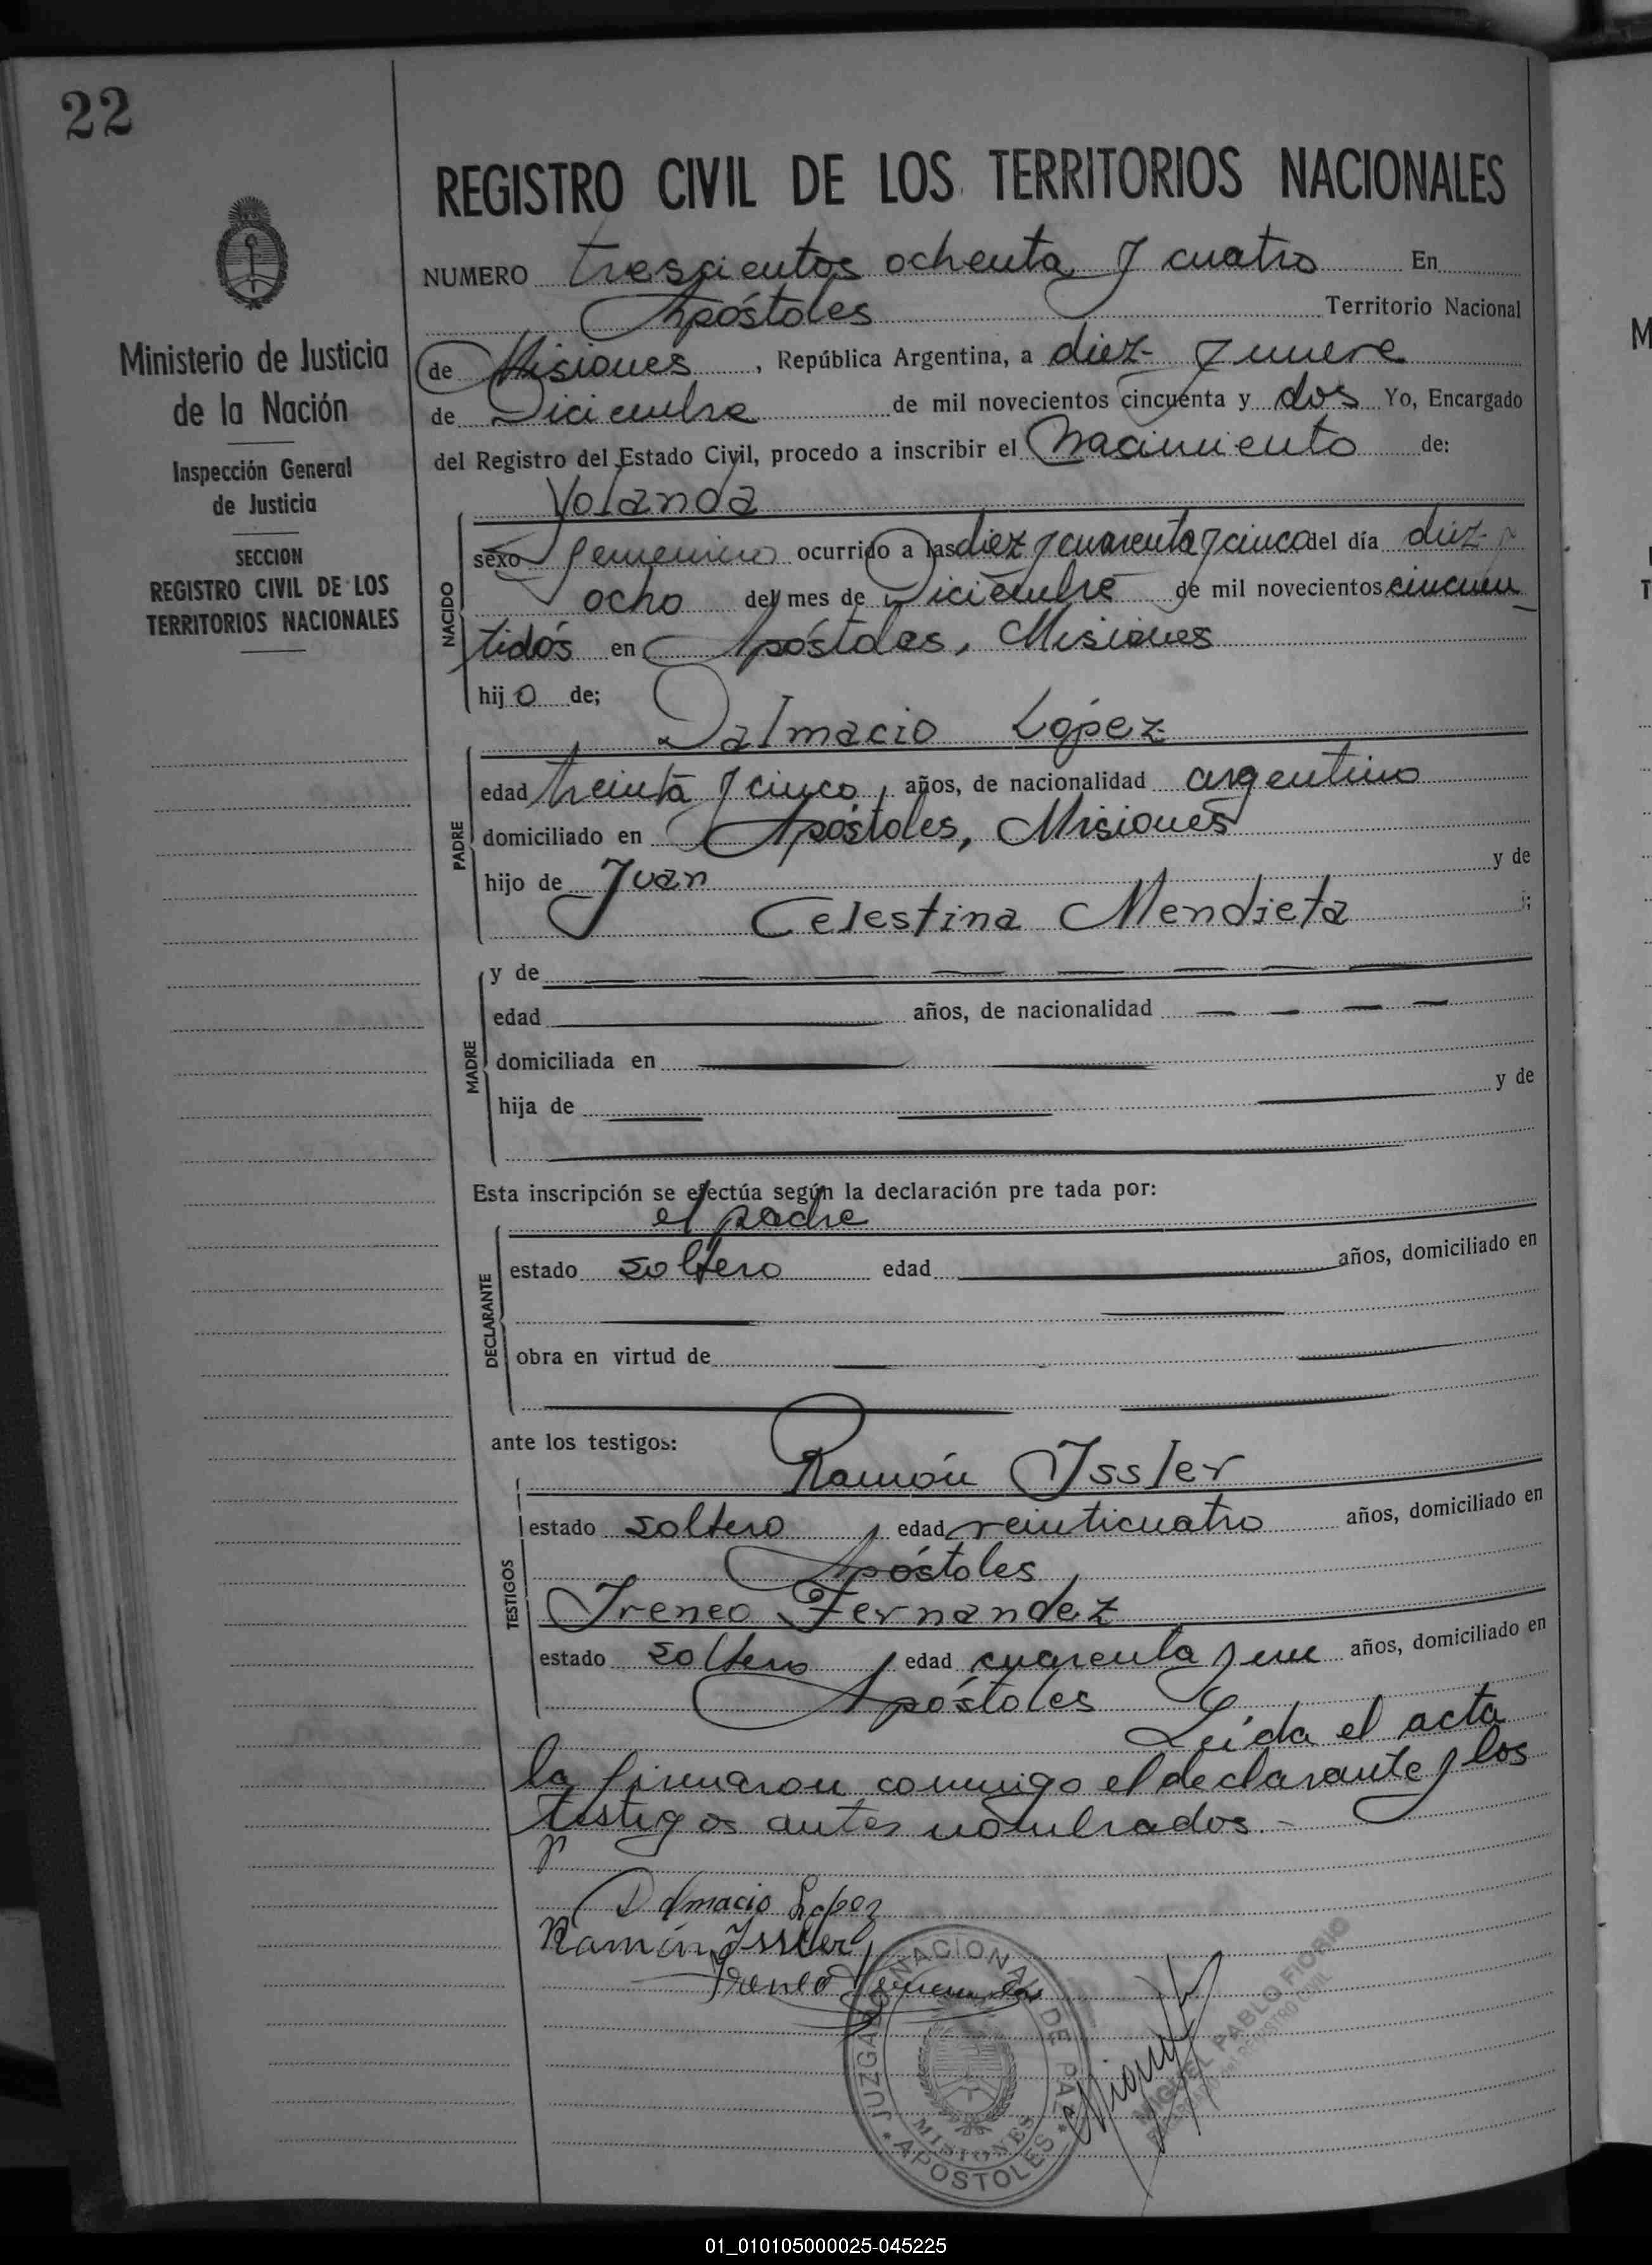 22
REGISTRO CIVIL DE LOS TERRITORIOS NACIONALES
Ministerio de Justicia
de la Nación
Inspección General
de Justicia
SECCION
REGISTRO CIVIL DE LOS
TERRITORIOS NACIONALES
NUMERO trescientos ochenta y cuatro En
Apóstoles Territorio Nacional
de Misiones, República Argentina, a diez y nueve
de Diciembre de mil novecientos cincuenta y dos Yo, Encargado
del Registro del Estado Civil, procedo a inscribir el Nacimiento de:
NACIDO
Yolanda
sexo femenino ocurrido a las diez y cuarenta y cinco del día diez y
ocho del mes de Diciembre de mil novecientos cincuen
tidós en Apóstoles, Misiones
hijo de;
PADRE
Dalmacio López
edad treinta y cinco años, de nacionalidad argentino
domiciliado en Apóstoles, Misiones
hijo de Juan y de
Celestina Mendieta ;
MADRE
y de
edad años, de nacionalidad
domiciliada en
hija de y de
Esta inscripción se efectúa según la declaración pre tada por:
DECLARANTE
el padre
estado soltero edad años, domiciliado en
obra en virtud de
ante los testigos:
TESTIGOS
Ramón Issler
estado soltero edad veinticuatro años, domiciliado en
Apóstoles
Ireneo Fernandez
estado soltero edad cuarenta y un años, domiciliado en
Apóstoles
Leída el acta
la firmaron conmigo el declarante y los
testigos antes nombrados.-
Dalmacio Lopez
Ramón Issler
Ireneo Fernandez
JUZGADO NACIONAL DE PAZ
MISIONES
* APOSTOLES *
MIGUEL PABLO FIORIO
ENCARGADO del REGISTRO CIVIL
01_010105000025-045225